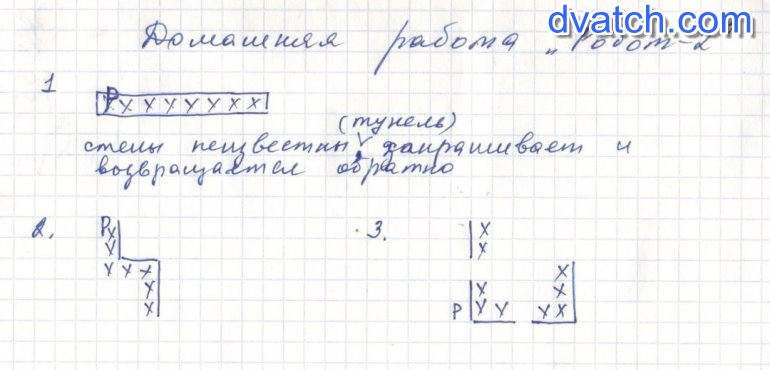 dvatch.com
Домашняя работа „Робот-2
1
Р х х х х х х х
(тунель)
стены неизвестны, закрашивает и
возвращается обратно
2. 3.
Р х х
х х
х х х х
х х х
х Р х х х х